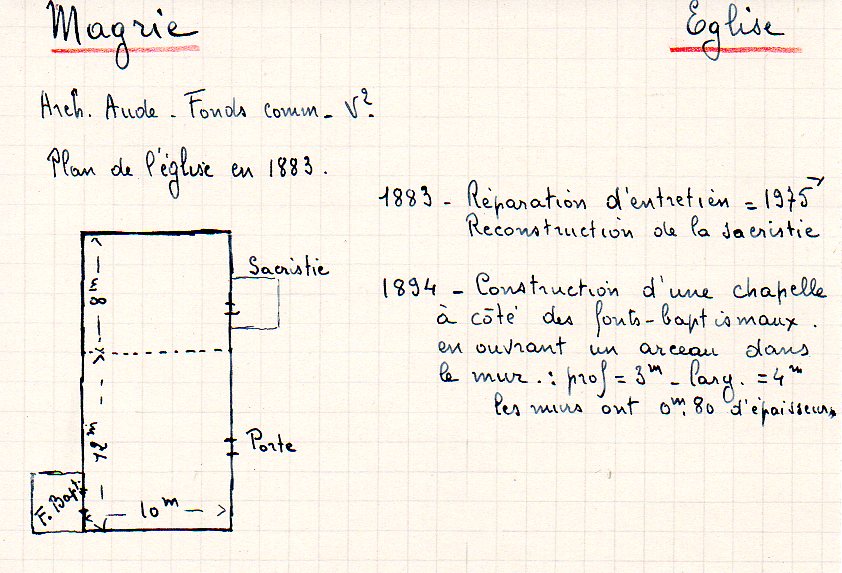 Magrie
Eglise
Arch. Aude - Fonds comm - V².
Plan de l'église en 1883.
1883 - Réparation d'entretien = 1975
Reconstruction de la sacristie
1894 - Construction d'une chapelle
à côté des fonts-baptismaux.
en ouvrant un arceau dans
le mur. : prof = 3m - larg. = 4m
les murs ont 0m.80 d'épaisseur
Sacristie
8m
12m
Porte
F. Bapt.
10m